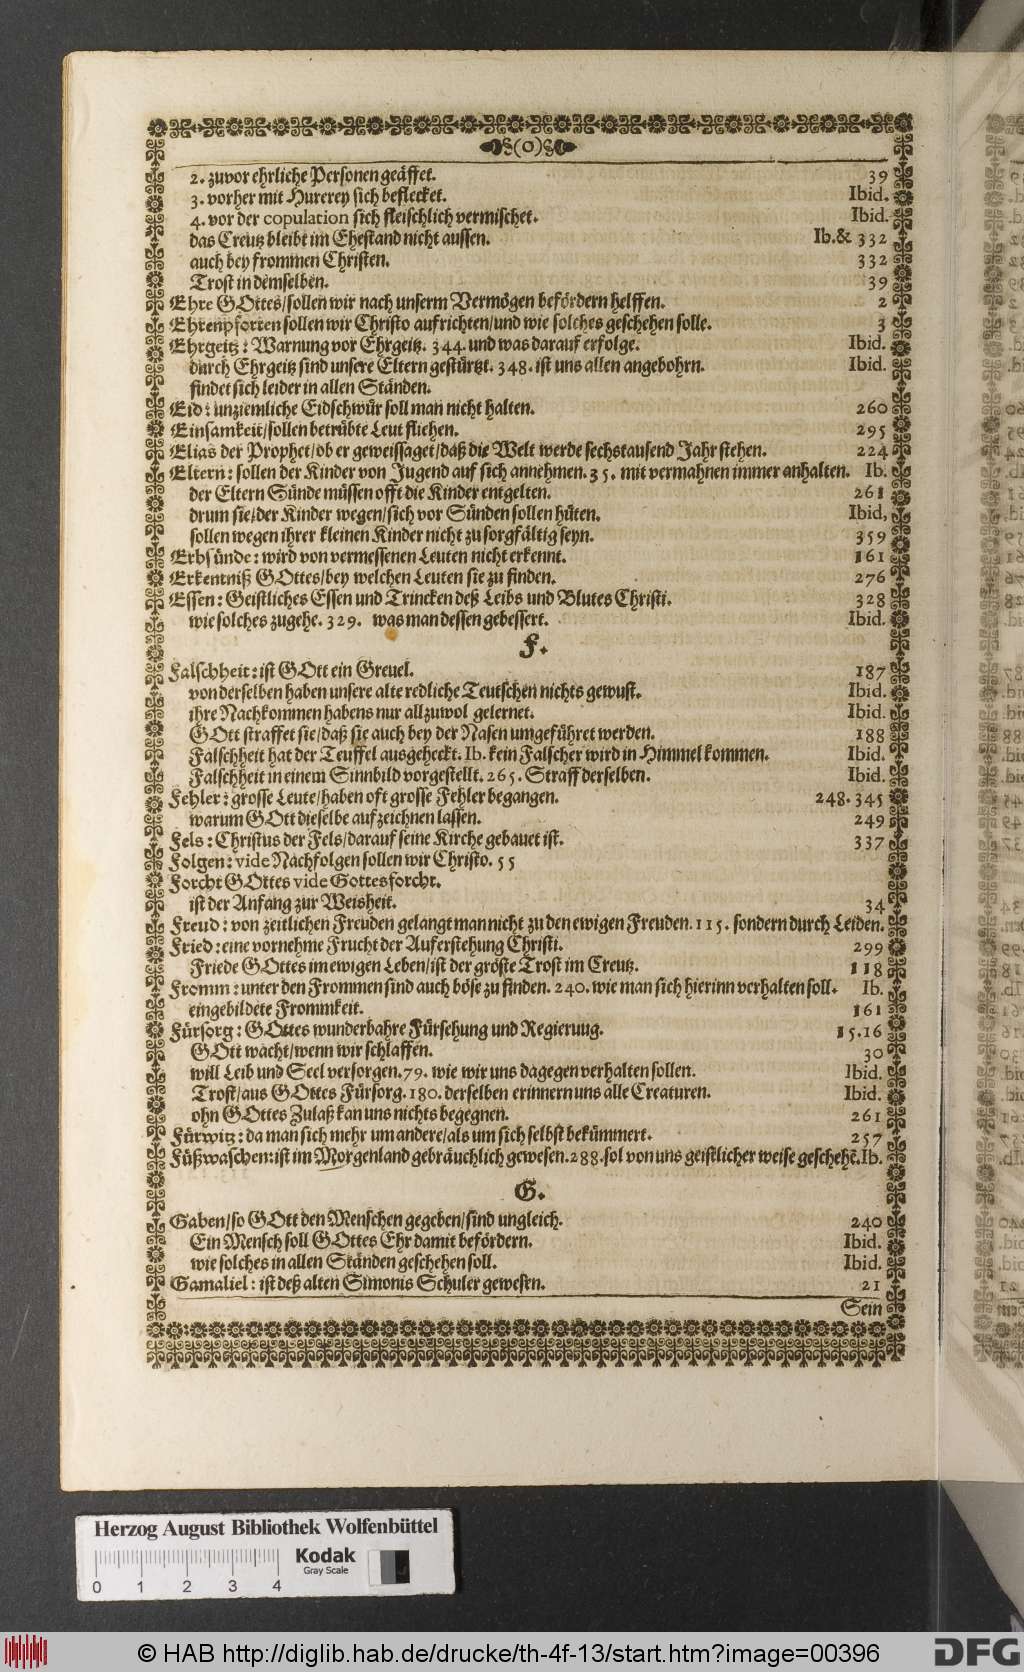 (o)
2. zuvor ehrliche Personen geäffet. 39
3. vorher mit Hurerey sich beflecket. Ibid.
4. vor der copulation sich fleischlich vermischet. Ibid.
das Creutz bleibt im Ehestand nicht aussen. Ib.& 332
auch bey frommen Christen. 332
Trost in demselben. 39
Ehre GOttes/sollen wir nach unserm Vermögen befördern helffen. 2
Ehrenpforten sollen wir Christo aufrichten/und wie solches geschehen solle. 3
Ehrgeitz: Warnung vor Ehrgeitz. 344. und was darauf erfolge. Ibid.
durch Ehrgeitz sind unsere Eltern gestürtzt. 348. ist uns allen angebohrn. Ibid.
findet sich leider in allen Ständen.
Eid: unziemliche Eidschwür soll man nicht halten. 260
Einsamkeit/sollen betrübte Leut fliehen. 295
Elias der Prophet/ob er geweissaget/daß die Welt werde sechstausend Jahr stehen. 224
Eltern: sollen der Kinder von Jugend auf sich annehmen. 35. mit vermahnen immer anhalten. Ib.
der Eltern Sünde müssen offt die Kinder entgelten. 261
drum sie/der Kinder wegen/sich vor Sünden sollen hüten. Ibid,
sollen wegen ihrer kleinen Kinder nicht zu sorgfältig seyn. 359
Erbsünde: wird von vermessenen Leuten nicht erkennt. 161
Erkentniß GOttes/bey welchen Leuten sie zu finden. 276
Essen: Geistliches Essen und Trincken deß Leibs und Blutes Christi. 328
wie solches zugehe. 329. was man dessen gebessert. Ibid.
F.
Falschheit: ist GOtt ein Greuel. 187
von derselben haben unsere alte redliche Teutschen nichts gewust. Ibid.
ihre Nachkommen habens nur allzuwol gelernet. Ibid.
GOtt straffet sie/daß sie auch bey der Nasen umgeführet werden. 188
Falschheit hat der Teuffel ausgeheckt. Ib. kein Falscher wird in Himmel kommen. Ibid.
Falschheit in einem Sinnbild vorgestellt. 265. Straff derselben. Ibid.
Fehler: grosse Leute/haben oft grosse Fehler begangen. 248. 345
warum GOtt dieselbe aufzeichnen lassen. 249
Fels: Christus der Fels/darauf seine Kirche gebauet ist. 337
Folgen: vide Nachfolgen sollen wir Christo. 55
Forcht GOttes vide Gottesforcht.
ist der Anfang zur Weisheit. 34
Freud: von zeitlichen Freuden gelangt man nicht zu den ewigen Freuden. 115. sondern durch Leiden.
Fried: eine vornehme Frucht der Auferstehung Christi. 299
Friede GOttes im ewigen Leben/ist der gröste Trost im Creutz. 118
Fromm: unter den Frommen sind auch böse zu finden. 240. wie man sich hierinn verhalten soll. Ib.
eingebildete Frommkeit. 161
Fürsorg: GOttes wunderbahre Fürsehung und Regieruug. 15.16
GOtt wacht/wenn wir schlaffen. 30
will Leib und Seel versorgen. 79. wie wir uns dagegen verhalten sollen. Ibid.
Trost/aus GOttes Fürsorg. 180. derselben erinnern uns alle Creaturen. Ibid.
ohn GOttes Zulaß kan uns nichts begegnen. 261
Fürwitz: da man sich mehr um andere/als um sich selbst bekümmert. 257
Füßwaschen: ist im Morgenland gebräuchlich gewesen. 288. sol von uns geistlicher weise geschehē. Ib.
G.
Gaben/so GOtt den Menschen gegeben/sind ungleich. 240
Ein Mensch soll GOttes Ehr damit befördern. Ibid.
wie solches in allen Ständen geschehen soll. Ibid.
Gamaliel: ist deß alten Simonis Schuler gewesen. 21
Sein
Herzog August Bibliothek Wolfenbüttel
Kodak
Gray Scale
0 1 2 3 4
© HAB http://diglib.hab.de/drucke/th-4f-13/start.htm?image=00396
DFG